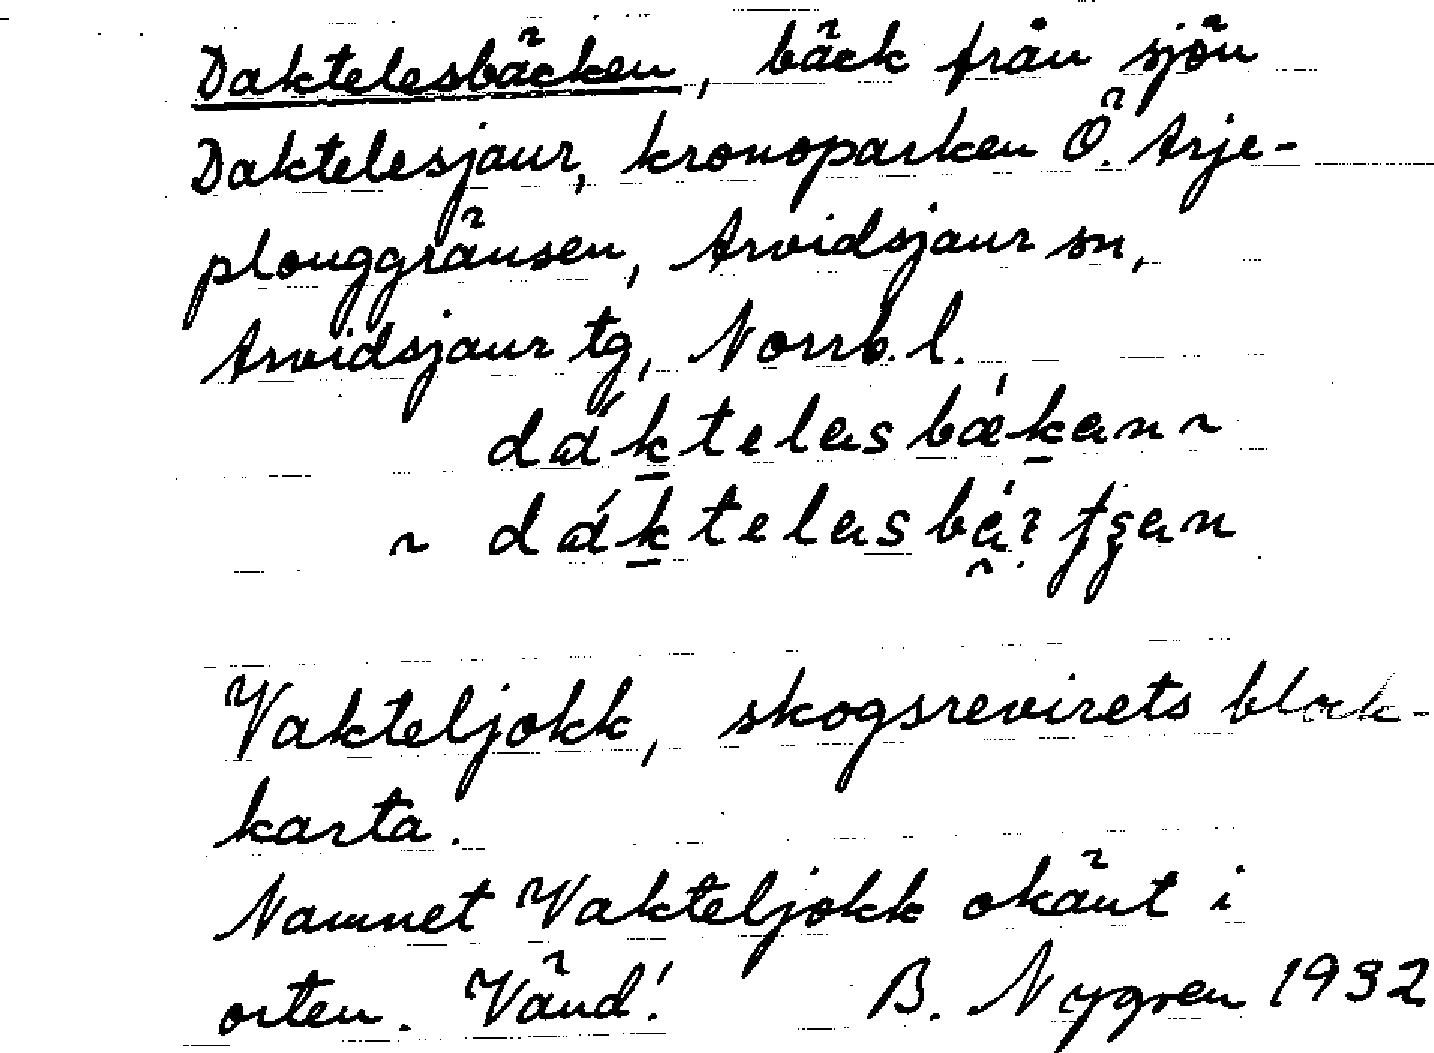 Daktelesbäcken, bäck från sjön
Daktelesjaur, kronoparken Ö. Arje-
plouggränsen, Arvidsjaur sn,
Arvidsjaur tg, Norrb. l.
Vakteljokk, skogsrevirets block-
karta.
Namnet Vakteljokk okänt i
orten. Vänd! B. Nygren 1932